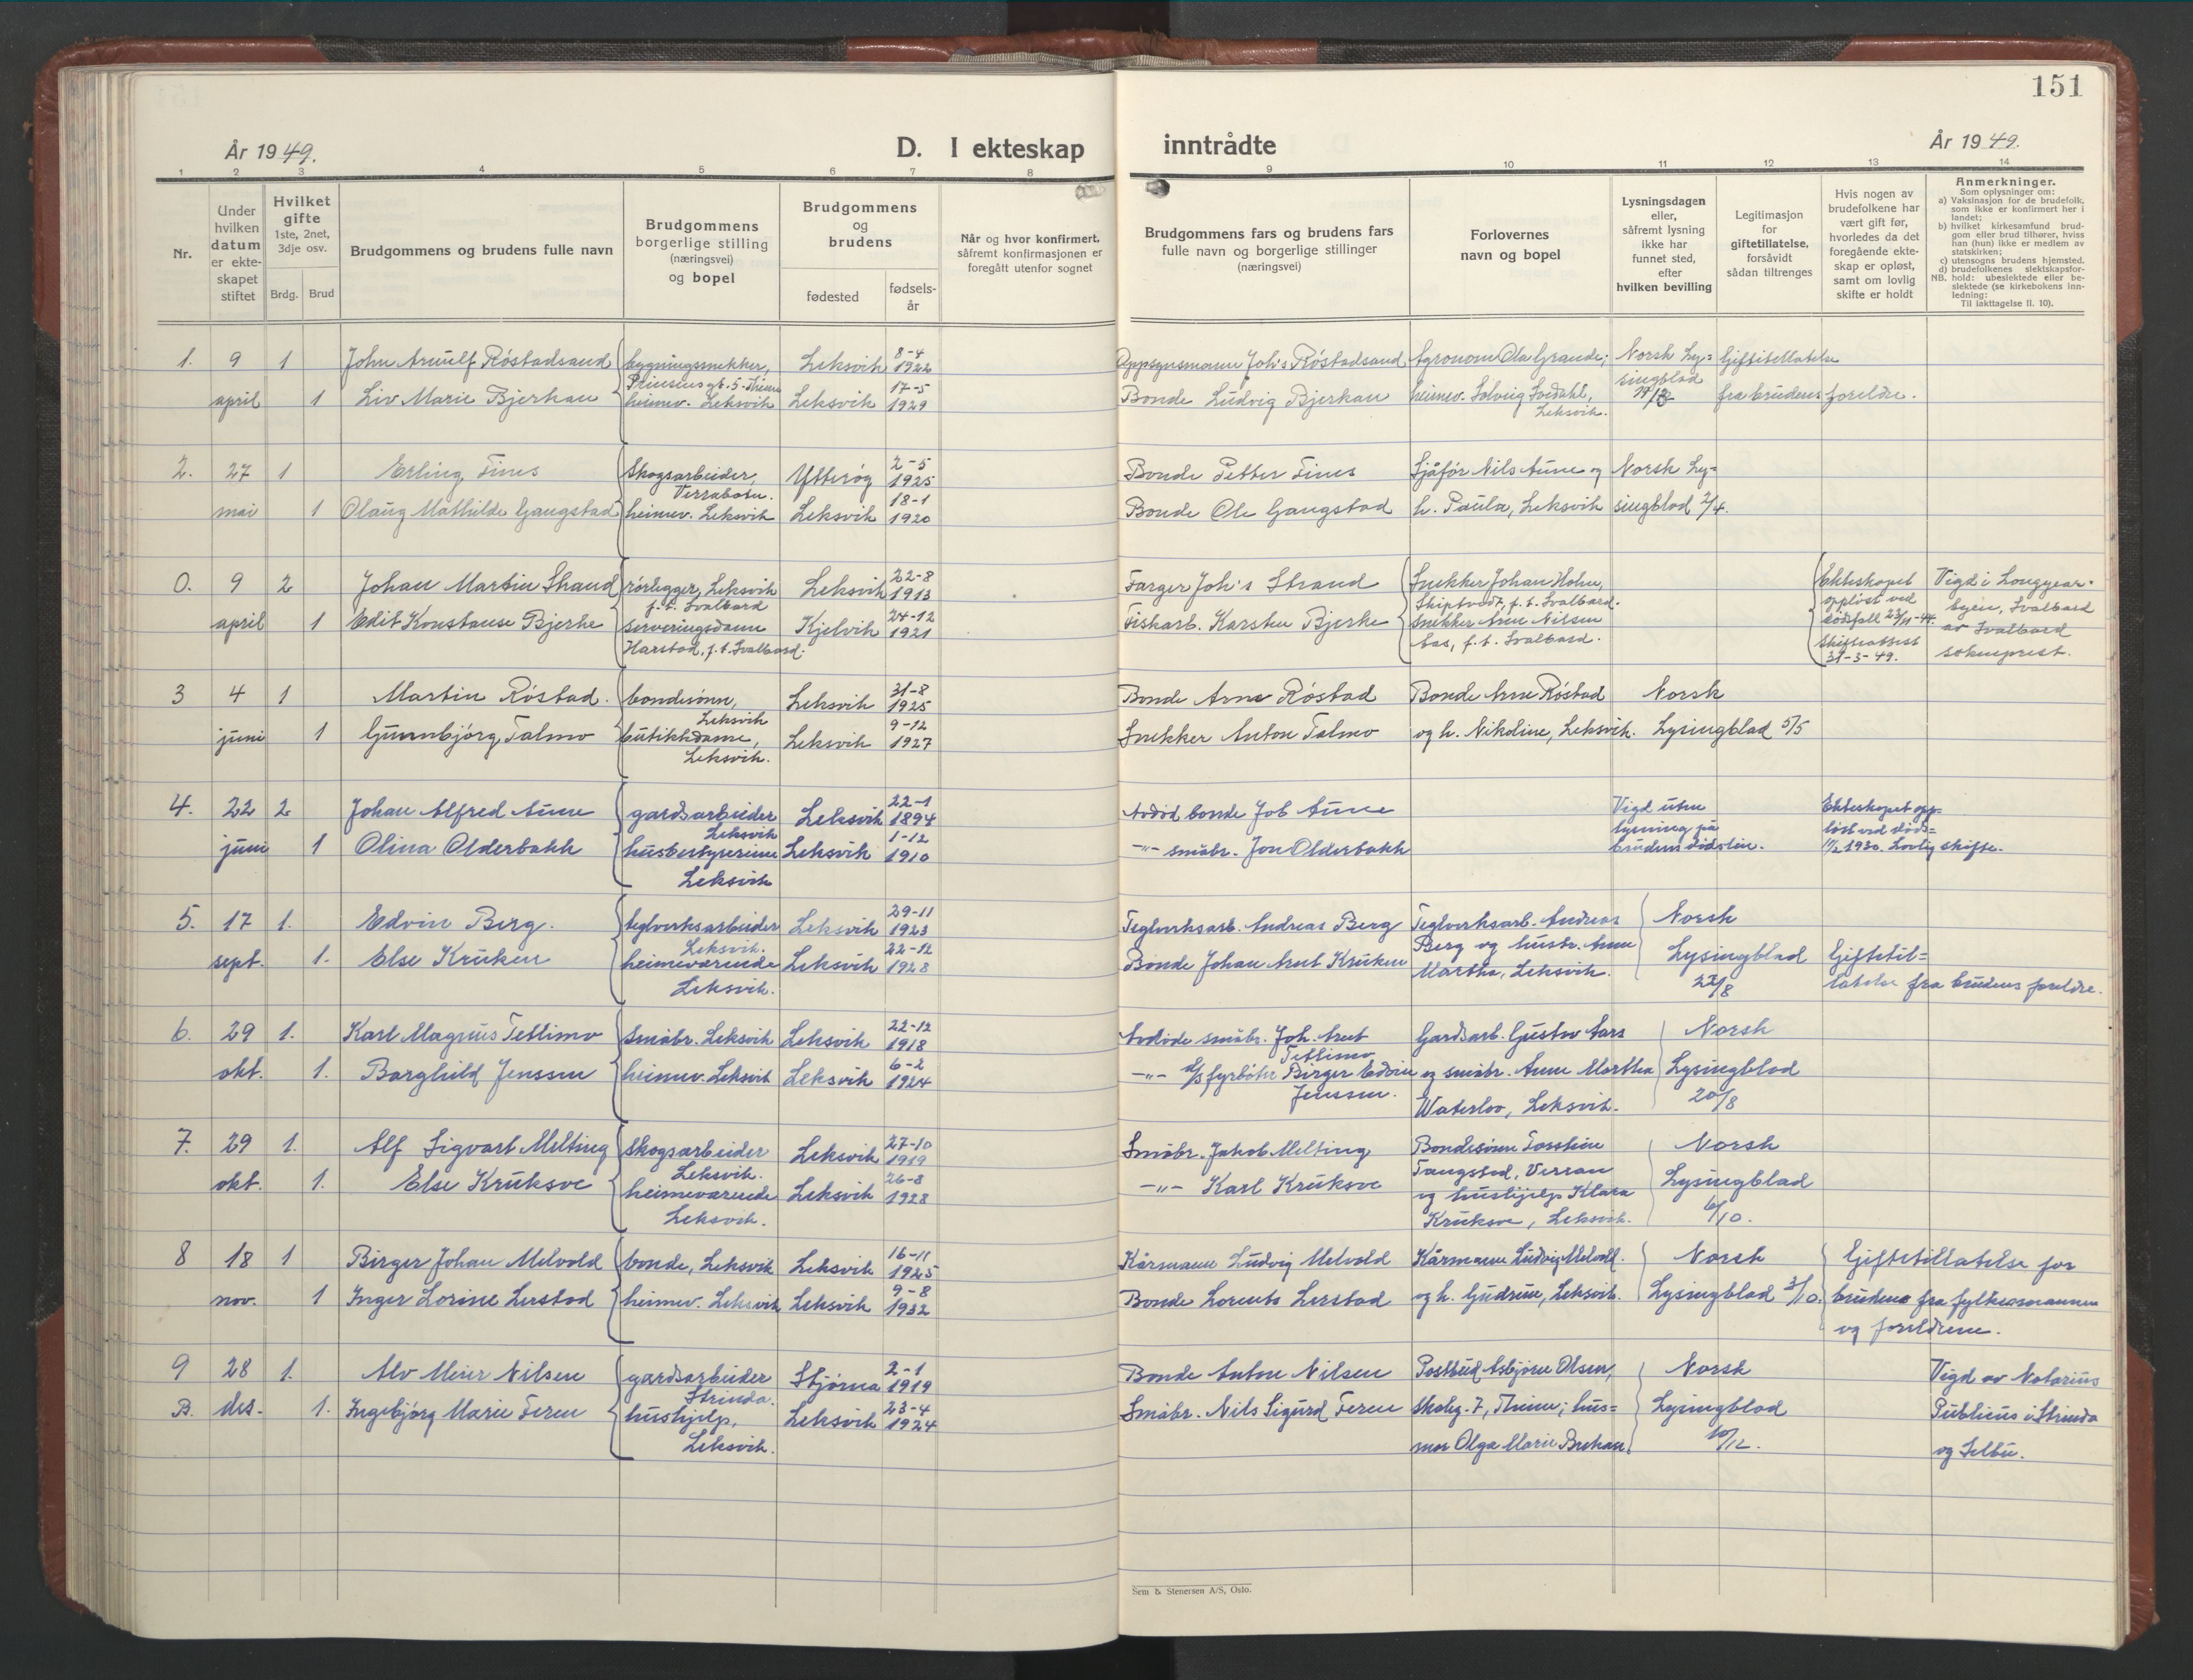 151
År 1949.
D. I ekteskap inntrådte
År 1949.
1 2 3 4 5 6 7 8 9 10 11 12 13 14
Nr.
Under hvilken datum er ekte-skapet stiftet
Hvilket gifte 1ste, 2net, 3dje osv.
Brdg. Brud
Brudgommens og brudens fulle navn
Brudgommens borgerlige stilling (næringsvei) og bopel
Brudgommens og brudens
fødested
fødsels-år
Når og hvor konfirmert, såfremt konfirmasjonen er foregått utenfor sognet
Brudgommens fars og brudens fars fulle navn og borgerlige stillinger (næringsvei)
Forlovernes navn og bopel
Lysningsdagen eller, såfremt lysning ikke har funnet sted, efter hvilken bevilling
Legitimasjon for giftetillatelse, forsåvidt sådan tiltrenges
Hvis nogen av brudefolkene har vært gift før, hvorledes da det foregående ekte-skap er opløst, samt om lovlig skifte er holdt
Anmerkninger.
Som oplysninger om:
a) Vaksinasjon for de brudefolk, som ikke er konfirmert her i landet;
b) hvilket kirkesamfund brud-gom eller brud tilhører, hviss han (hun) ikke er medlem av statskirken;
c) utensogns brudens hjemsted.
d) brudefolkenes slektskapsfor-
NB. hold: ubeslektede eller be-slektede (se kirkebokens inn-ledning:
Til iakttagelse II. 10).
1. 9 1 John Arnulf Róstadsand bygningssnekker, Leksvik 8-4 1922 Oppsynsmann Joh's Róstadsand Agronom Ola Grande; Norsk Ly= Giftetillatelse
Prinsensgt. 5. Th.eim
april 1 Liv Marie Bjerkan heimev. Leksvik Leksvik 17-5 1929 Bonde Ludvig Bjerkan heimev. Solveig Sordahl, Leksvik. singblad fra brudens foreldre.
2. 27 1 Erling Fines Skogsarbeider, Verrabotn. Ytterøy 2-5 1925 Bonde Petter Fines Sjåfør Nils Aune og Norsk Ly=
mai 1 Olaug Mathilde Gangstad heimev. Leksvik Leksvik 18-1 1920 Bonde Ole Gangstad h. Paula, Leksvik singblad 2/4.
0. 9 2 Johan Martin Strand rörlegger, Leksvik f.t. Svalbard Leksvik 22-8 1913 Farger Joh's Strand Snekker Johan Holm, Skiptvedt, f.t. Svalbard. Ekteskapet oppløst ved dödsfall 23/11-44. Vigd i Longyear-byen, Svalbard
april 1 Edit Konstanse Bjerke serveringsdame Harstad, f.t. Svalbard. Kjelvik 24-12 1921 Fiskarb. Karsten Bjerke Snekker Arne Nilsen Aas, f.t. Svalbard. Skifteattest 31-3-49. av Svalbard sokneprest.
3 4 1 Martin Róstad. bondesönn, Leksvik Leksvik 31-8 1925 Bonde Arne Róstad Bonde Arne Róstad Norsk
juni 1 Gunnbjórg Talmo butikkdame, Leksvik. Leksvik 9-12 1927 Snekker Anton Talmo og h. Nikoline, Leksvik. Lysingblad 5/5
4. 22 2 Johan Alfred Aune gardsarbeider Leksvik Leksvik 22-1 1894 Avdöd bonde Job Aune Vigd uten lysning på Ekteskapet opp=löst ved döds=
juni 1 Olina Olderbakk husbestyrerinne Leksvik Leksvik 1-12 1910 -"- småbr. Jon Olderbakk brudens dödsleie. 11/2 1930. Lovlig skifte.
5. 17 1. Edvin Berg. teglverksarbeider Leksvik. Leksvik 29-11 1923 Teglverksarb. Andreas Berg Teglverksarb. Andreas Norsk
sept. 1. Else Kruken heimeværende Leksvik. Leksvik 22-12 1928 Bonde Johan Arnt Kruken Berg og hustr. Anne Martha, Leksvik. Lysingblad 22/8 Giftetil=latelse fra brudens foreldre.
6. 29 1. Karl Magnus Tetlimo Småbr. Leksvik Leksvik 22-12 1918 Avdöde småbr. Joh. Arnt Tetlimo Gardsarb. Gustav Aars Norsk
okt. 1. Borghild Jenssen heimev. Leksvik Leksvik 6-2 1924 -"- d/s fyrböter Birger Edvin Jenssen. og småbr. Anne Martha Waterloo, Leksvik. Lysingblad 20/8
7. 29 1. Alf Sigvart Melting skogsarbeider Leksvik. Leksvik 27-10 1919 Småbr. Jakob Melting Bondesönn Torstein Norsk
okt. 1. Else Kruksve heimeværende Leksvik. Leksvik 26-8 1928 -"- Karl Kruksve Tangstad, Verran og hushjelp Klara Kruksve, Leksvik. Lysingblad 6/10.
8 18 1 Birger Johan Melvold bonde, Leksvik Leksvik 16-11 1925 Kårmann Ludvig Melvold Kårmann Ludvig Melvold. Norsk Giftetillatelse for
nov. 1 Inger Lorine Lerstad heimev. Leksvik Leksvik 9-8 1932 Bonde Lorents Lerstad og h. Gudrun, Leksvik. Lysingblad 3/10. brudens fra fylkesmannen og foreldrene.
9 28 1. Alv Meier Nilsen gardsarbeider Strinda. Stjørna 2-1 1919 Bonde Anton Nilsen Postbud Asbjörn Olsen, Norsk Vigd av Notarius
B. des. 1. Ingebjørg Marie Feren hushjelp, Leksvik. Leksvik 23-4 1924 Småbr. Nils Sigurd Feren 7, Th.eim; hus=mor Olga Marie Brekan. Lysingblad 10/12. Publicus i Strinda og Selbu.
Sem & Stenersen A/S, Oslo.